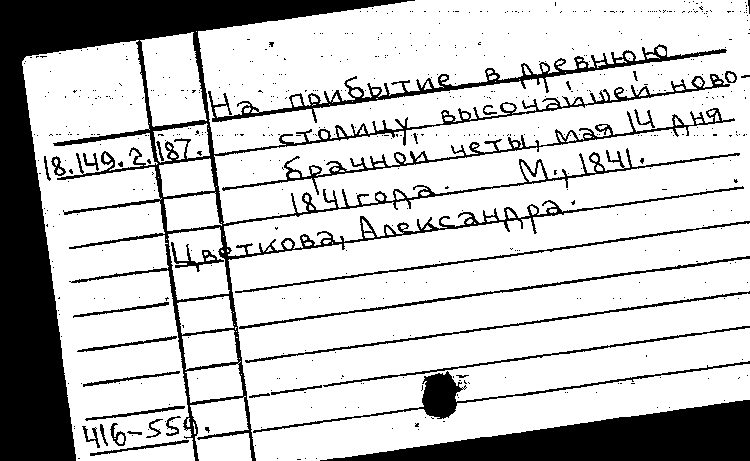 На прибытие в древнюю
столицу высочайшей ново-
18.149.2.187.
брачной четы, мая 14 дня
1841 года. М., 1841.
Цветкова, Александра.
416-559.